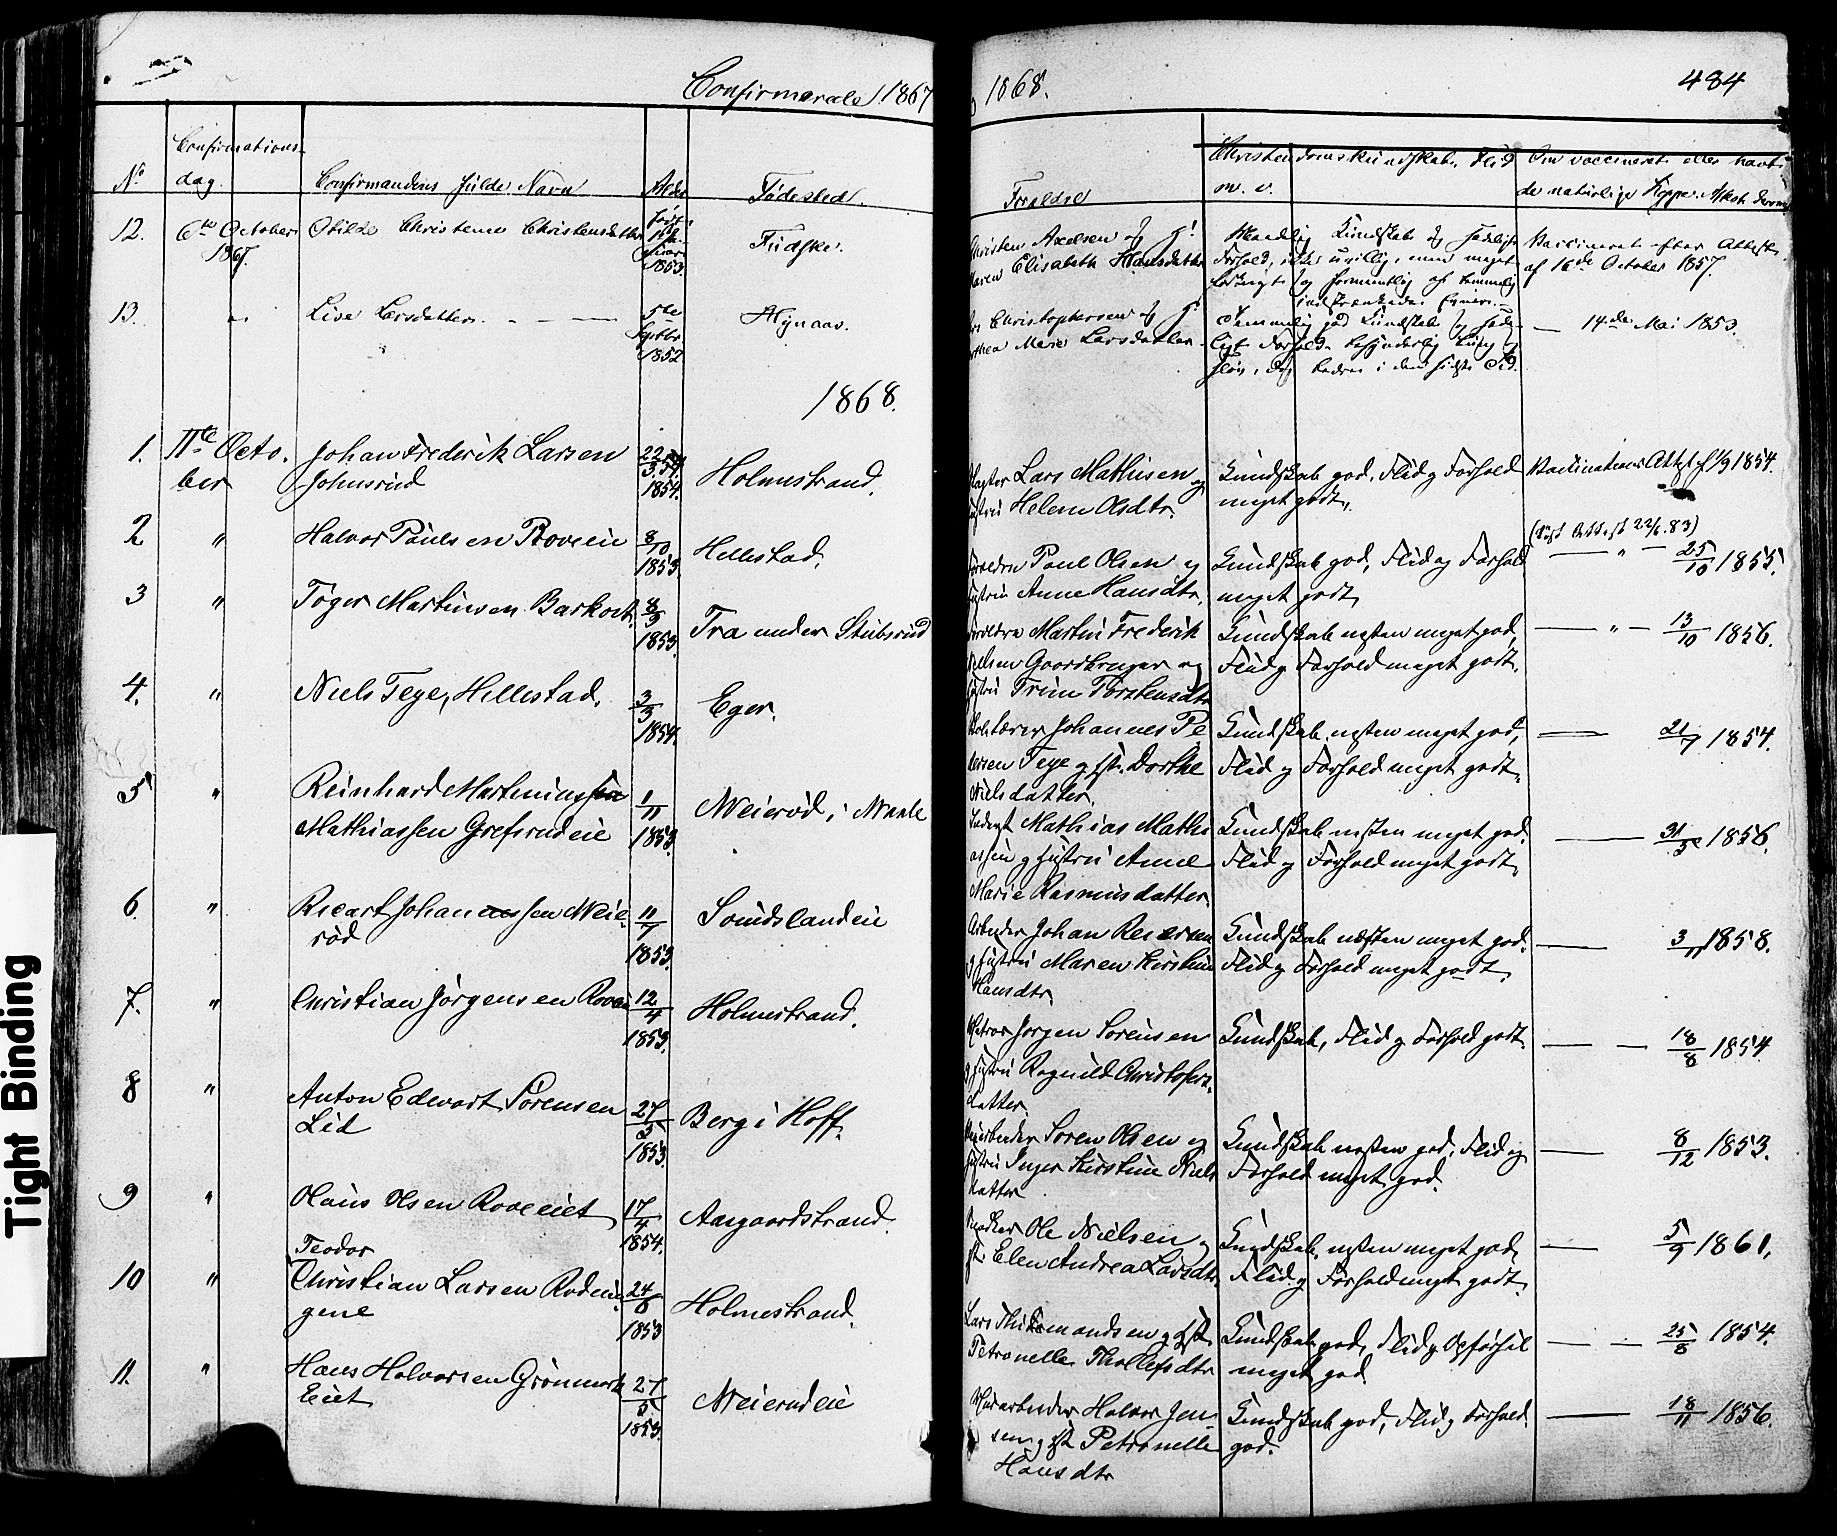 Confirmerede 1867
1868.
484
No
Confirmations-
dag.
Confirmandens fulde Navn
Alder
Fødested.
Forældre
Christendomskundskab, Flid
m. v.
Om vaccineret eller havt
de naturlige Kopper. Attest derom
12.
6te October
1867.
Otilde Christine Christensdatter
Født
1853
Christen Axelsen og H.
Maren Elisabeth Hansdatter
Maadelig Kundskab og sædeligt
Forhold, ikke uvillig, men meget
Vaccineret efter Attest
af 16de October 1857.
13.
"
Lise Larsdatter.
5te
Septbr
1852
Christophersen og H.
Dorthea Marie Larsdatter
Temmelig god Kundskab og sæde-
ligt Forhold.
bedre i den sidste Tid.
14de Mai 1853.
1868.
1.
11te Octo.
ber
Johan Frederik Larsen
Johnsrud
22
3
1854.
Holmestrand.
Lars Mathisen og
Hustru Helene Olsdtr.
Kundskab god, Flid og Forhold
meget godt.
Vaccinations Attest af 1/9 1854.
2
"
Halvor Paulsen Roveeie
8/10
1853.
Hillestad.
Forældre Paul Olsen og
Hustru Anne Hansdtr.
Kundskab god, Flid og Forhold
meget godt.
(Døbt Attest 22/6.83)
— " — 25/10 1855.
3
"
Tøger Martinsen Barkost.
8/9
1853.
Fra under Stubsrud
Forældre Martin Frederik
Nielsen Gaardbruger og
Hustru Trine Torstensdtr
Kundskab næsten meget god,
Flid og Forhold meget godt.
— " — 13/10 1856.
4.
"
Niels Teye, Hillestad.
3/3
1854.
Eger.
Skolelærer Johannes Pe
dersen Teye og Hst. Dorthe
Nielsdatter.
Kundskab næsten meget god,
Flid og Forhold meget godt.
21/7 1854.
5
"
Reinhard Martiniussen
Mathiassen Grefsrudeie
1/11
1853.
Meierød i Vaale
Mathias Mathi
assen og Hustru Anne
Marie Rasmusdatter.
Kundskab næsten meget god.
Flid og Forhold meget godt.
31/5 1856.
6.
"
Ricart Johannessen Meie-
rød
11/7
1853.
Sundslandeie
Arbeider Johan Reiersen
og Hustru Maren Kirstine
Hansdtr.
Kundskab næsten meget god.
Flid og Forhold meget godt.
3/11 1858.
7.
"
Christian Jørgensen Roveeie
12/4
1853.
Holmestrand.
Matros Jørgen Sørensen
og Hustru Ragnild Christofers-
datter.
Kundskab, Flid og Forhold godt.
18/8 1854
8
"
Anton Edevart Sørensen
Lid
27/5
1853.
Berg i Hoff.
Søren Olsen og
Hustru Inger Kirstine Niels
datter
Kundskab næsten god, Flid og
Forhold meget god.
8/12 1853.
9
"
Hans Olsen Roveeiet
17/4
1854.
Aasgaardstrand.
Ole Nielsen og
Hst. Elen Andrea Larsdtr.
Kundskab næsten meget god,
Flid og Forhold meget godt.
5/9 1861,
10
"
Teodor
Christian Larsen Rodein
gene
24/6
1853
Holmestrand.
Lars Thidemandsen og Hst.
Petronelle Thollefsdtr
Kundskab god, Flid og Opførsel
meget god
25/8 1854.
11.
"
Hans Halvorsen Grønmark
Eiet
27/5.
1853.
Meierudeie
Husarbeider Halvor Jen-
sen og Hst Petronelle
Hansdtr
Kundskab god, Flid og Forhold
god.
18/11 1856.
Tight Binding